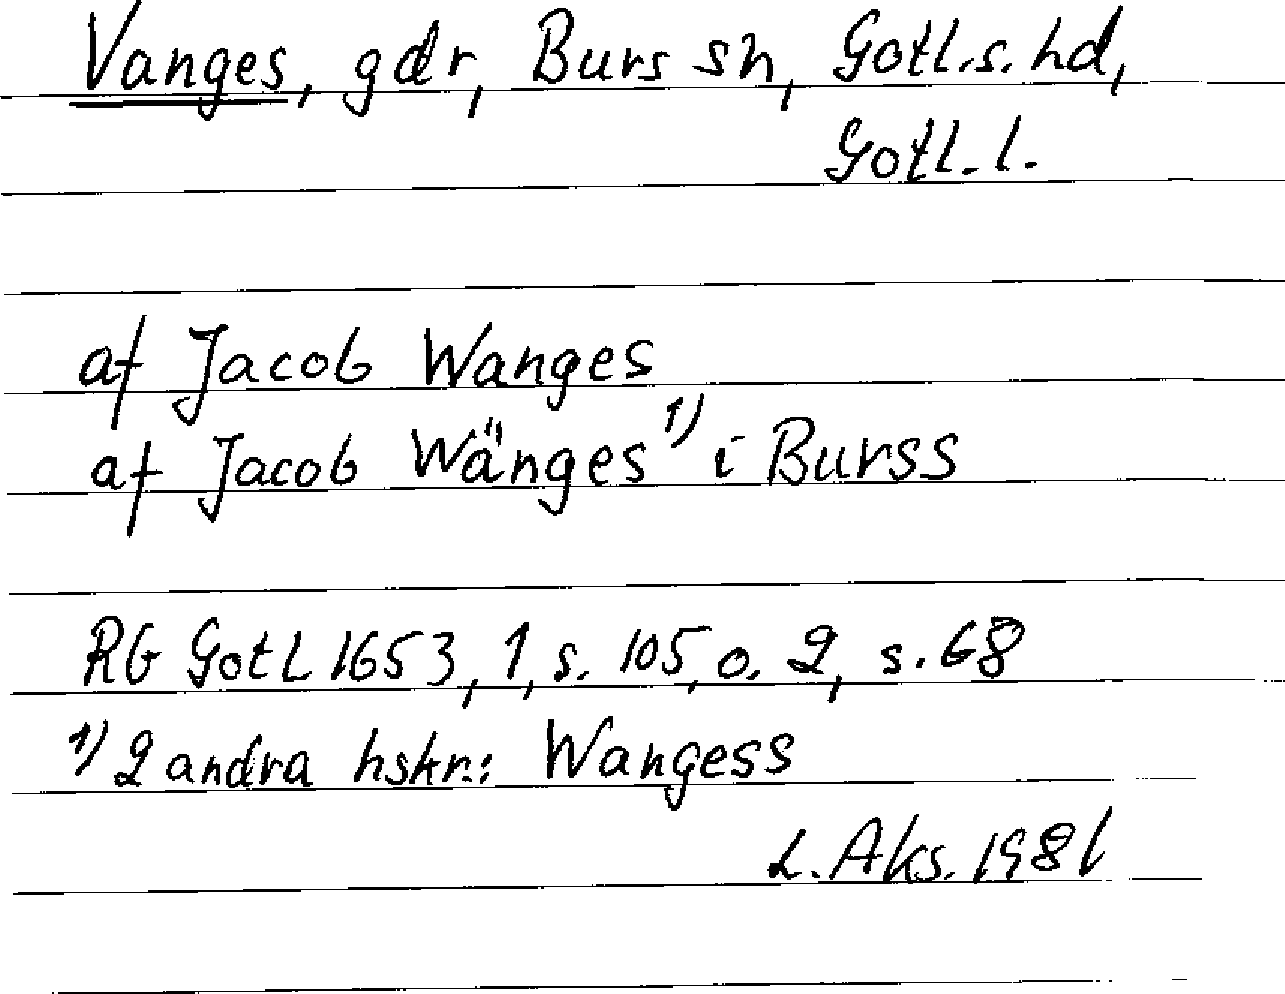 Vanges, gdr, Burs sn, Gotl.s. hd,
Gotl. l.
af Jacob Wanges
af Jacob Wänges 1) i Burss
RG GotL 1653, 1, s. 105, o. 2, s. 68
1) 2 andra hskr.: Wangess
L. Aks. 1981